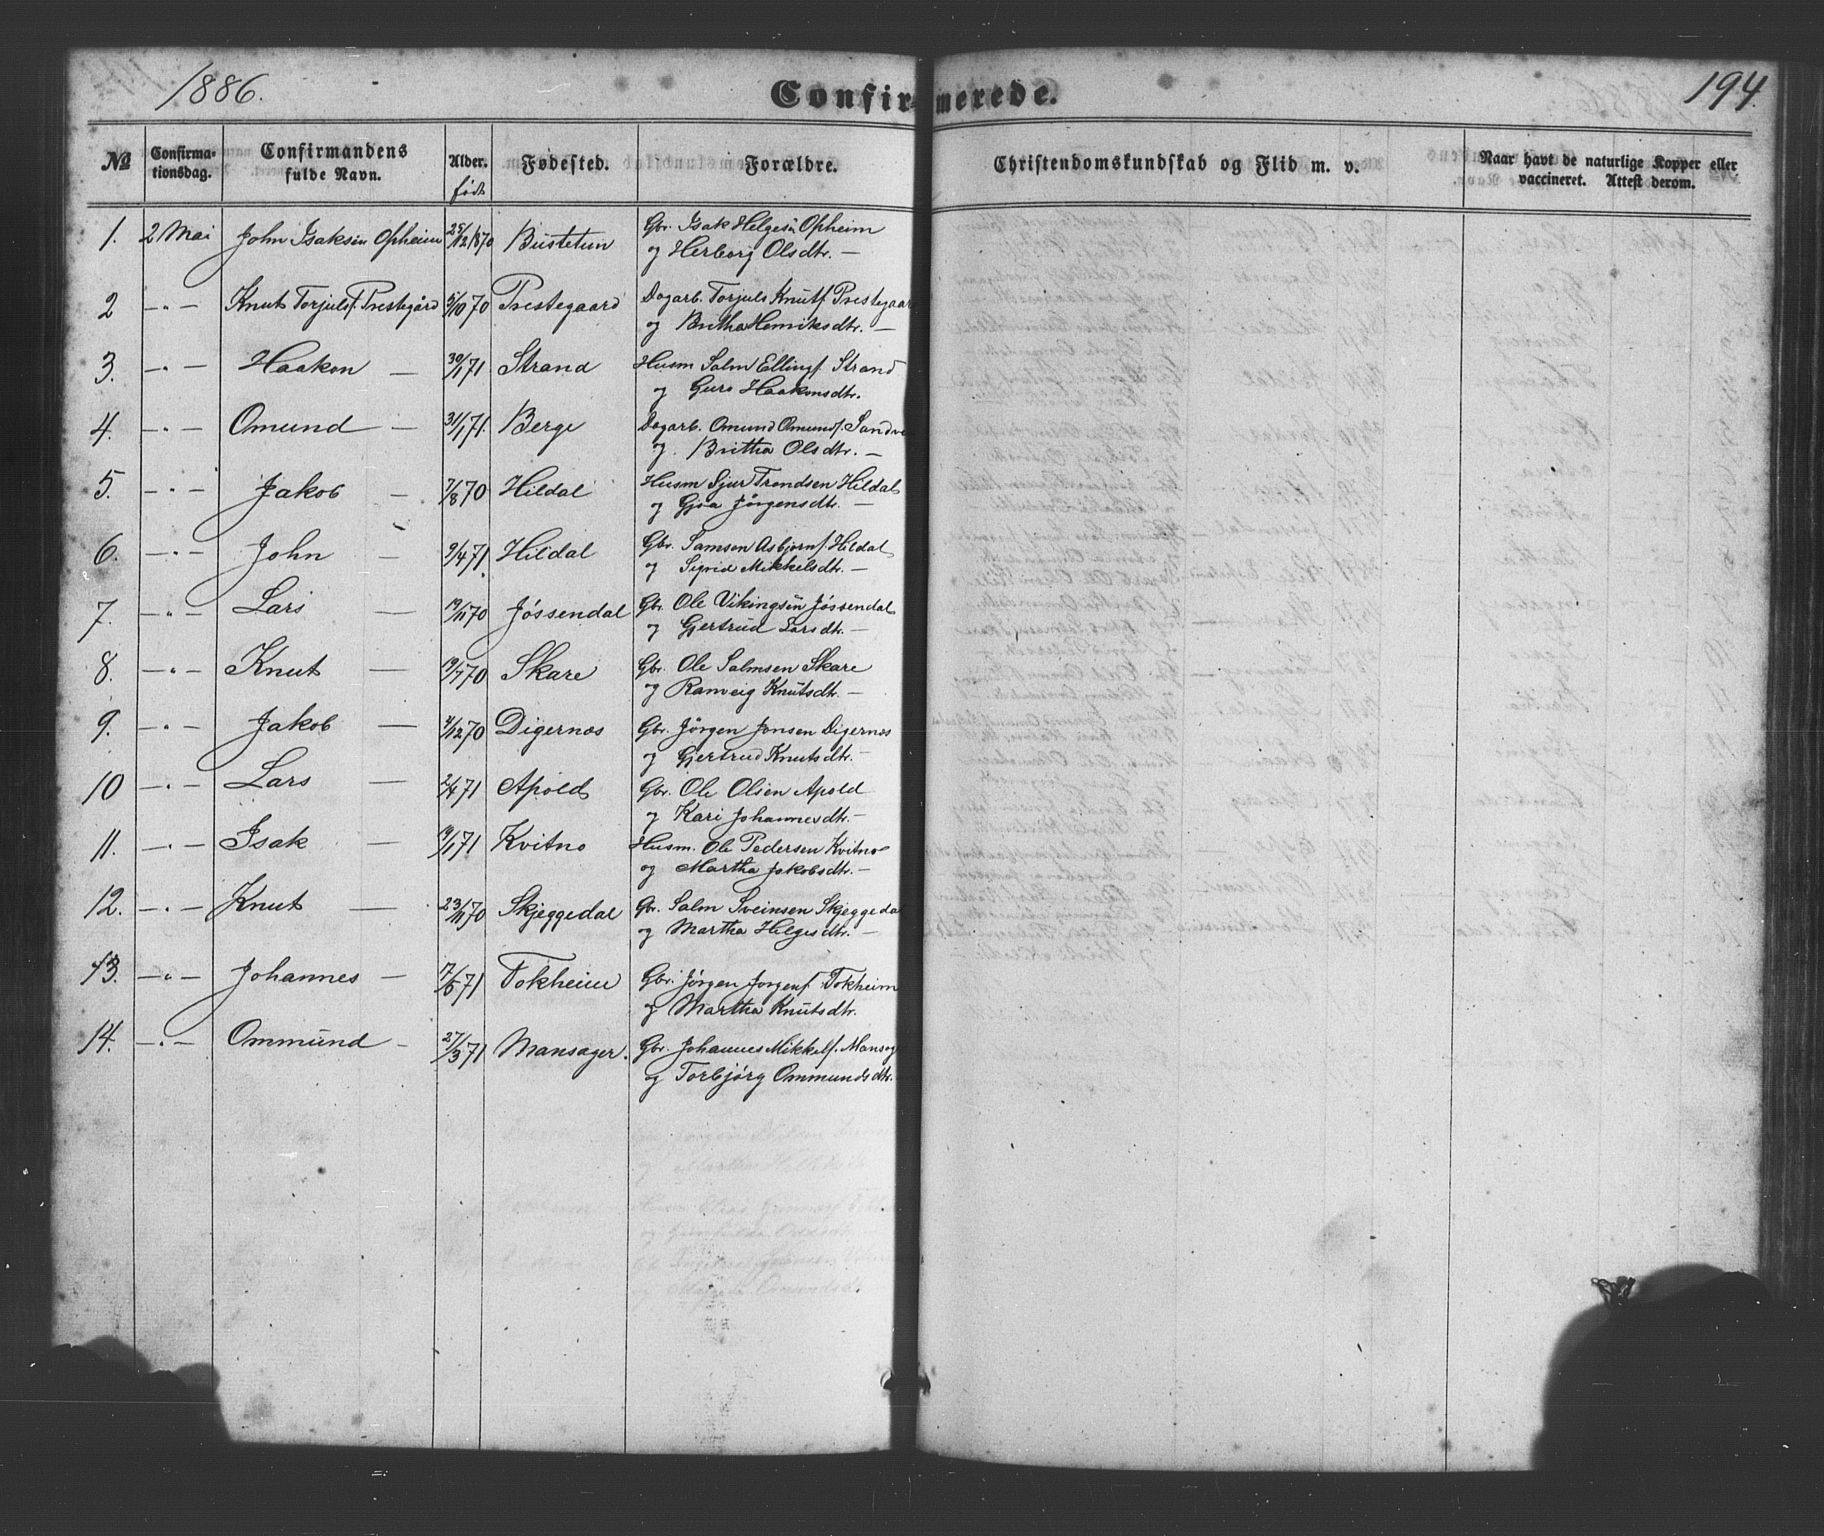 1886.
Confirmerede.
194.
No Confirmationsdag. Confirmandens fulde Navn. Alder. født Fødested. Forældre. Christendomskundskab og Flid m. v. Naar havt de naturlige Kopper eller vaccineret. Attest derom.
1. 2 Mai John Isaksøn Opheim 25/12 1870 Bustetun Gbr. Isak Helgesøn Opheim
og Herborg Olsdtr. —
2 — " — Knut Torjulsf. Prestegård 5/10 70 Prestegaard Dagarb. Torjuls Knutf. Prestegaar
og Britha Henriksdtr. —
3. — " — Haakon — 30/1 71 Strand Husm Salm Ellingf. Strand
og Guro Haakonsdtr.
4. — " — Omund — 31/1 71. Berge Dagarb. Omund Omunsf. Sandve
og Britha Olsdtr. —
5. — " — Jakob — 7/8 70 Hildal Husm Sjur Trondsen Hildal
og Gjøa Jörgensdtr. —
6. — " — John — 9/4 71 Hildal Gbr. Samson Asbjørnf. Hildal
og Sigrid Mikkelsdtr. —
7. — " — Lars — 19/11 70 Jössendal Gbr. Ole Vikingsøn Jøssendal
og Gjertrud Larsdtr. —
8. — " — Knut — 19/7 70 Skare Gbr. Ole Salmsen Skare
og Ranveig Knutsdtr. —
9. — " — Jakob — 4/12 70 Digernæs Gbr. Jörgen Jonsen Digernæs
og Gjertrud Knutsdtr.
10 — " — Lars — 2/4 71 Apold Gbr. Ole Olsen Apold
og Kari Johannesdtr. —
11. — " — Isak — 19/1 71 Kvitno Husm. Ole Pedersen Kvitno
og Martha Jakobsdtr. —
12. — " — Knut — 23/11 70 Skjeggedal Gbr. Salm Sveinsen Skjeggeda
og Martha Helgesdtr. —
13. — " — Johannes — 7/5 71 Tokheim Gbr. Jörgen Jorgenf. Tokheim
og Martha Knutsdtr.
14. — " — Ommund — 27/3 71 Mansager. Gbr. Johannes Mikkelf. Mansag
og Torbjörg Ommundsdtr.